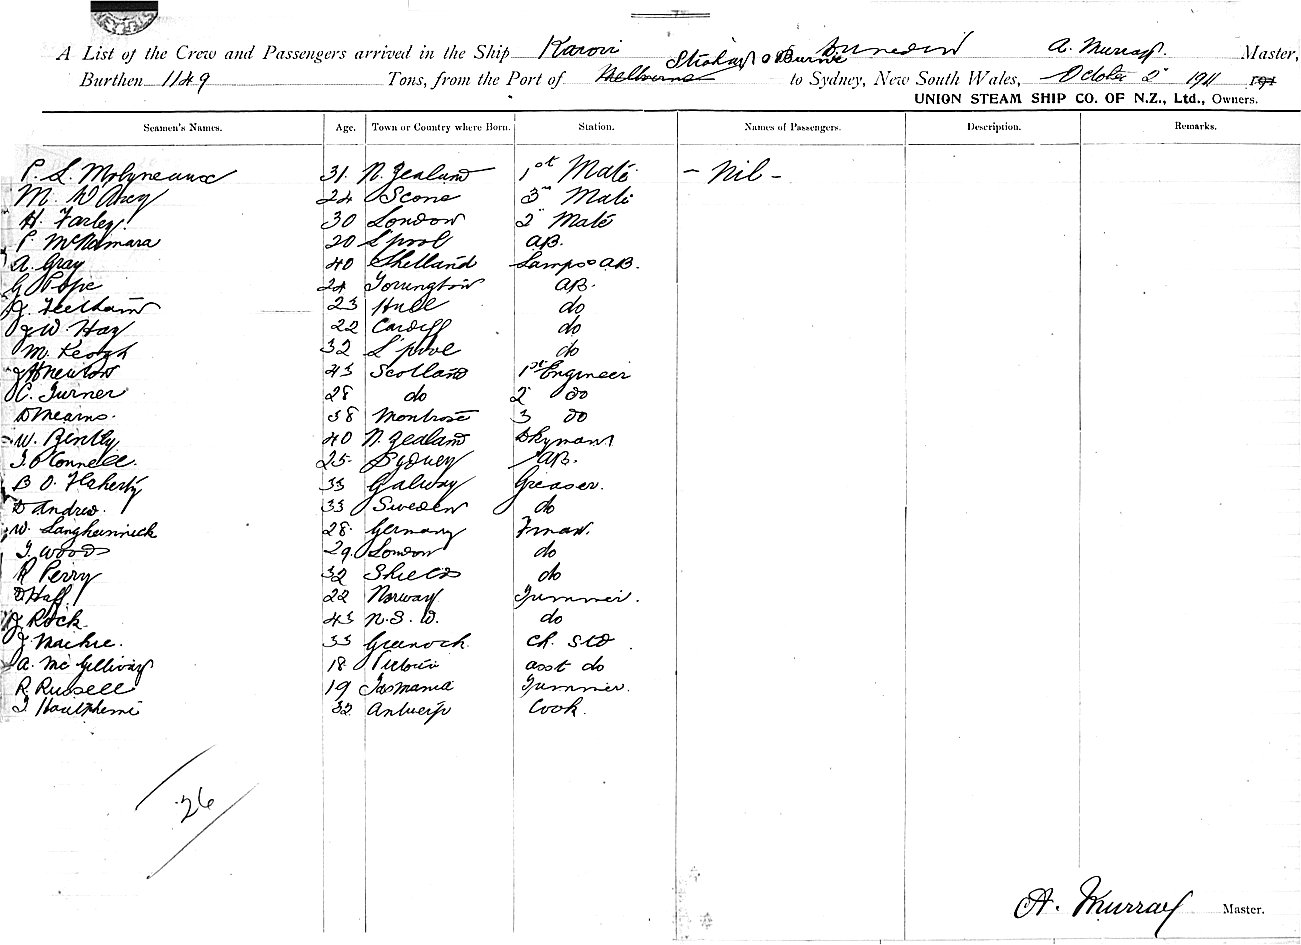 A List of the Crew and Passengers arrived in the Ship Karori of Dunedin A. Murray. Master,
Burthen 1149 Tons, from the Port of Melbourne Strahan & Burnie to Sydney, New South Wales, October 2" 1911 191
UNION STEAM SHIP CO. OF N.Z., Ltd., Owners.
Seamen's Names. Age. Town or Country where Born. Station. Names of Passengers. Description. Remarks.
P. L. Molyneaux 31 N. Zealand 1st Mate - Nil -
M. D'Arcy 24 Scone 3rd Mate
H. Farley. 30 London 2" Mate
P. McNamara 20 L'pool AB.
A. Gray 40 Shetland Lamps & AB.
G. Pope 24 Torrington AB.
J. Feetham 23 Hull do
J. W. Hay 22 Cardiff do
M. Keogh 32 L'pool do
J H Newton 43 Scotland 1st Engineer
C. Turner 28 do 2 do
D Mearns. 38 Montrose 3 do
W. Bently 40 N. Zealand Dkyman
T. O'Connell. 25 Sydney AB.
B O. Flaherty 33 Galway Greaser.
D Andrew. 33 Sweden do
W. Langheinrick 28 Germany Fman.
T. Woods 29. London do
R Perry 32 Shields do
D Haff 22 Norway Trimmer.
J Rock 43 N. S. W. do
J. Mackie. 33 Greenock. Ch. Std
A. McGillivray 18 Victoria asst do
R. Russell 19 Tasmania Trimmer.
32 Antwerp Cook.
26
A. Murray Master.